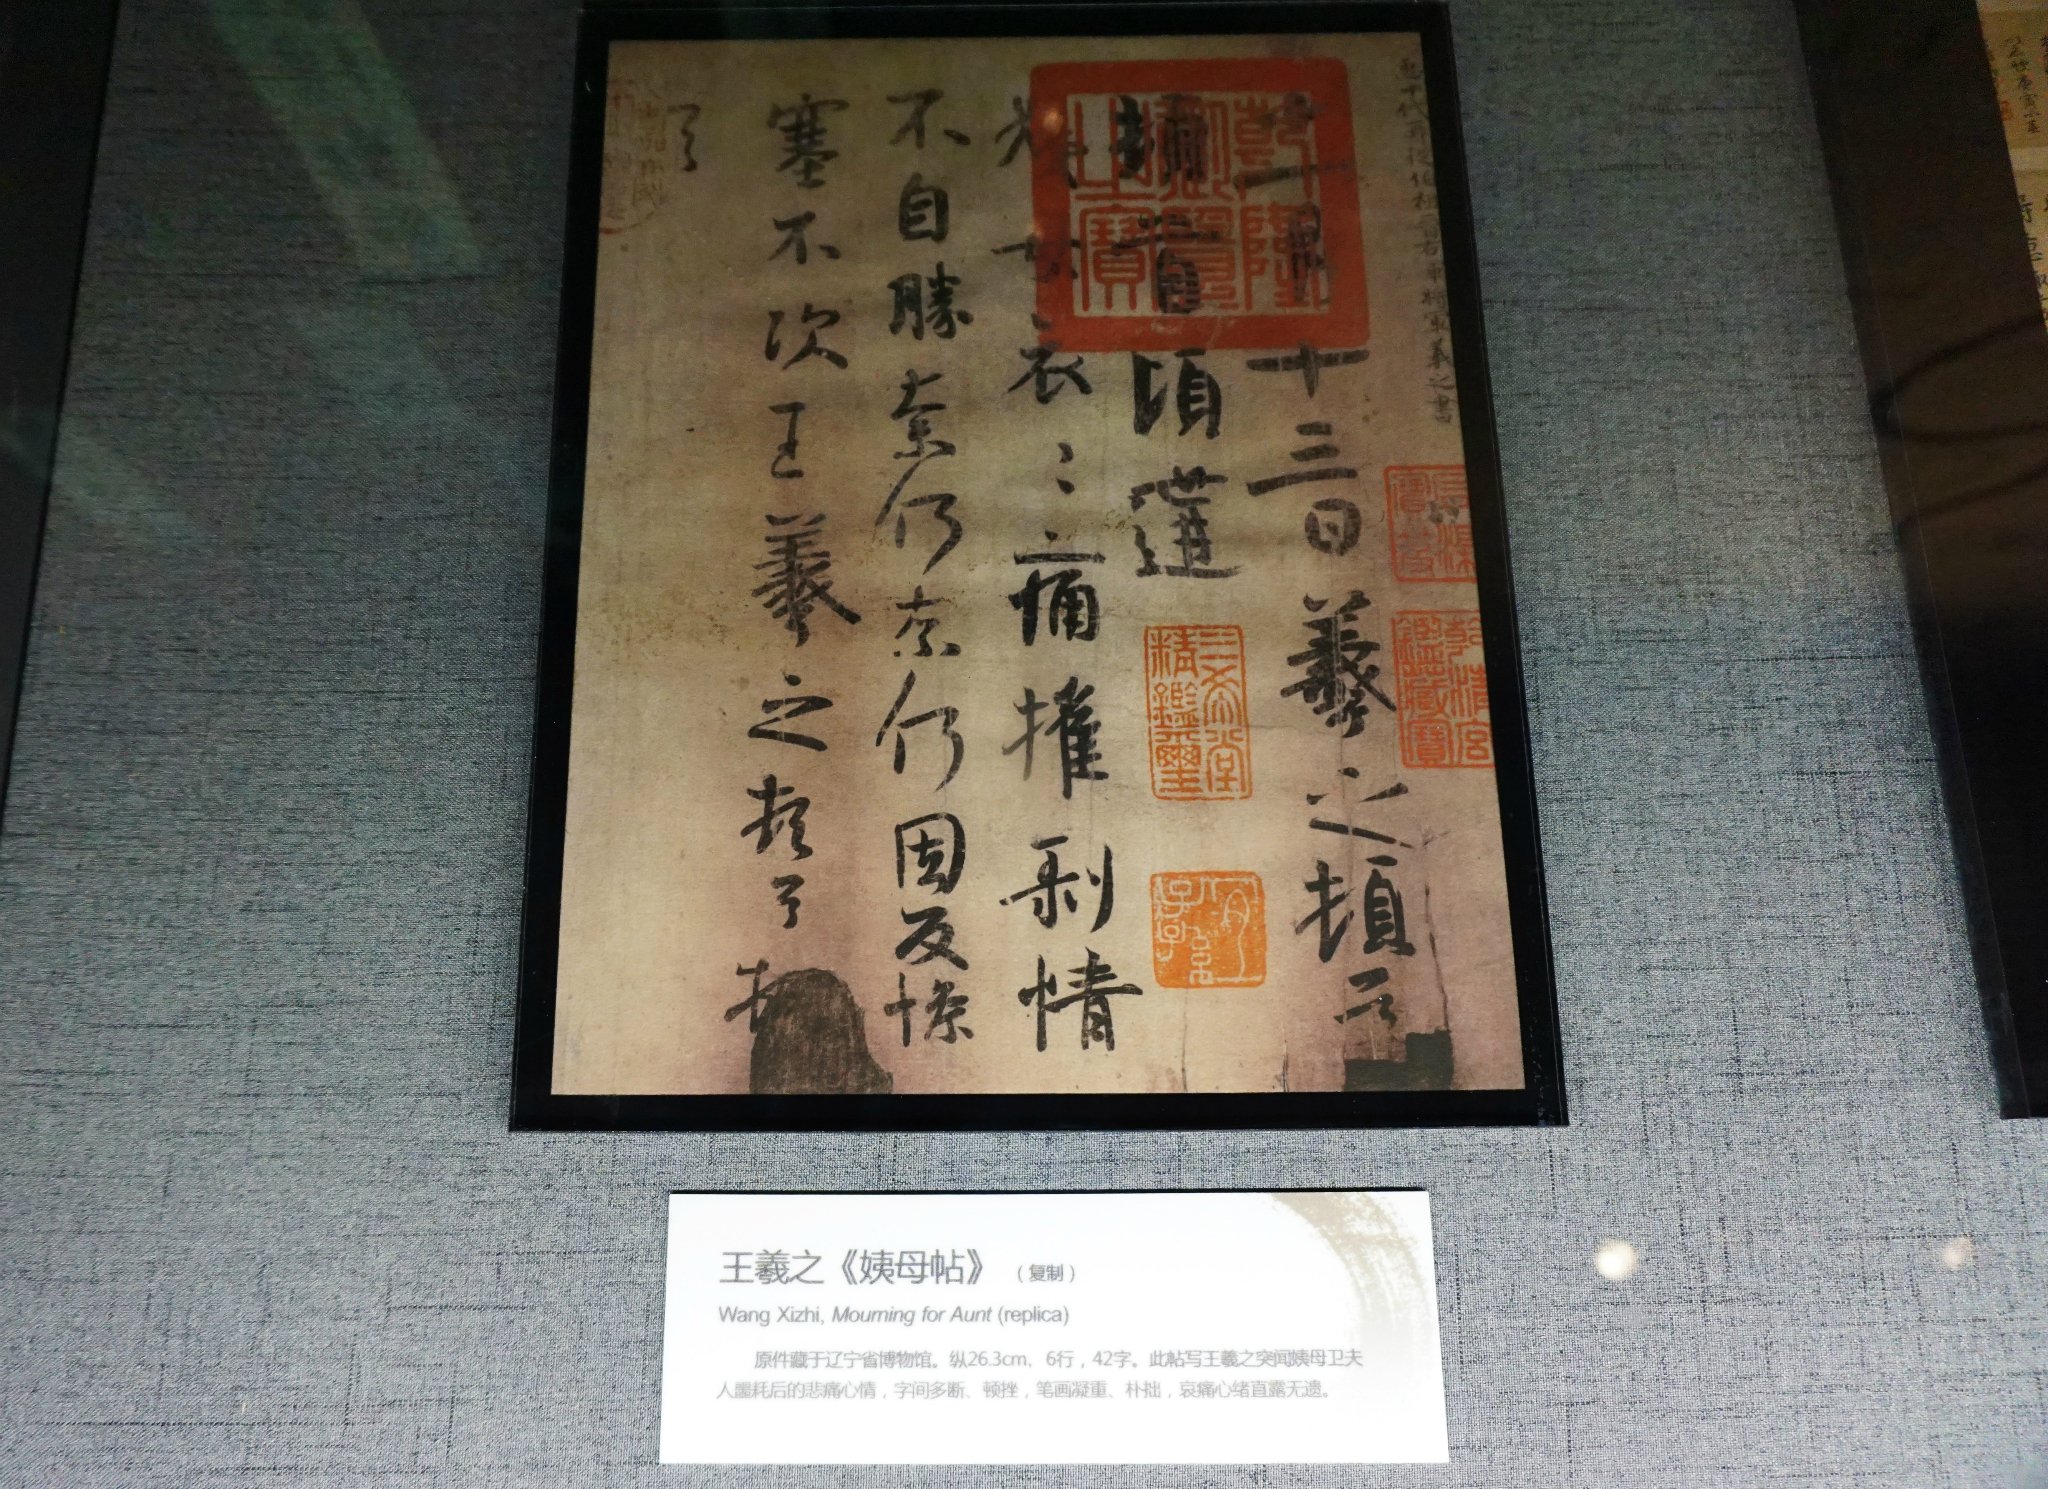 十一月十三日羲之頓首
頓首頃遘
姨母哀哀痛摧剥情
不自勝奈何奈何因反惨
塞不次王羲之頓首頓
首
乾隆御覽之寶
三希堂精鑑璽
宜子孫
乾清宮鑑藏寶
王羲之《姨母帖》（复制）
Wang Xizhi, Mourning for Aunt (replica)
原件藏于辽宁省博物馆。纵26.3cm、6行，42字。此帖写王羲之突闻姨母卫夫
人噩耗后的悲痛心情，字间多断、顿挫，笔画凝重、朴拙，哀痛心绪直露无遗。